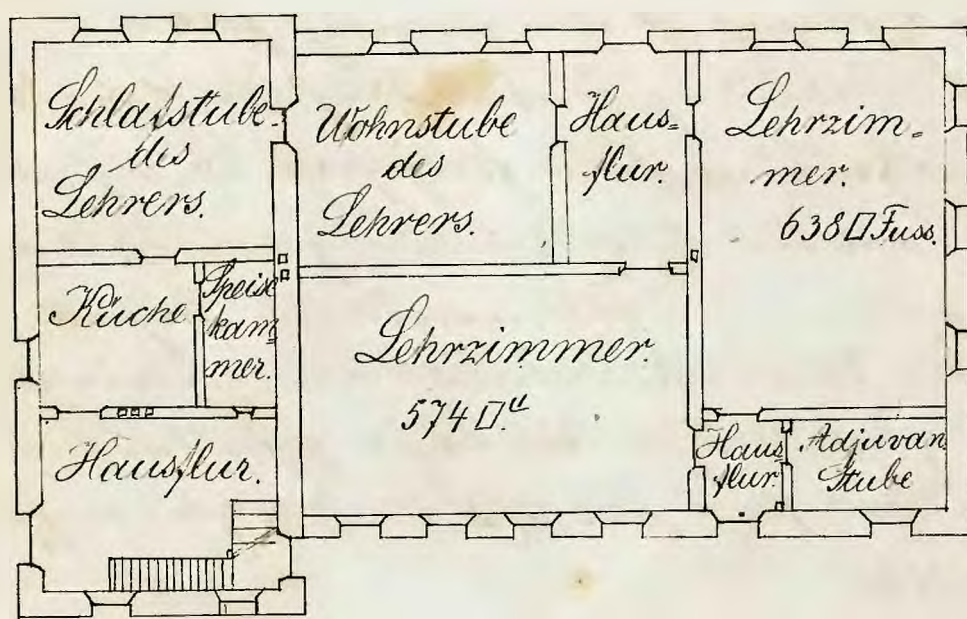 Schlafstube
des
Lehrers.
Wohnstube
des
Lehrers.
Haus=
flur.
Lehrzim=
mer.
638□Fuss.
Küche
Speise
kam=
mer.
Lehrzimmer.
574□."
Hausflur.
Haus=
flur.
Adjuvan
Stube